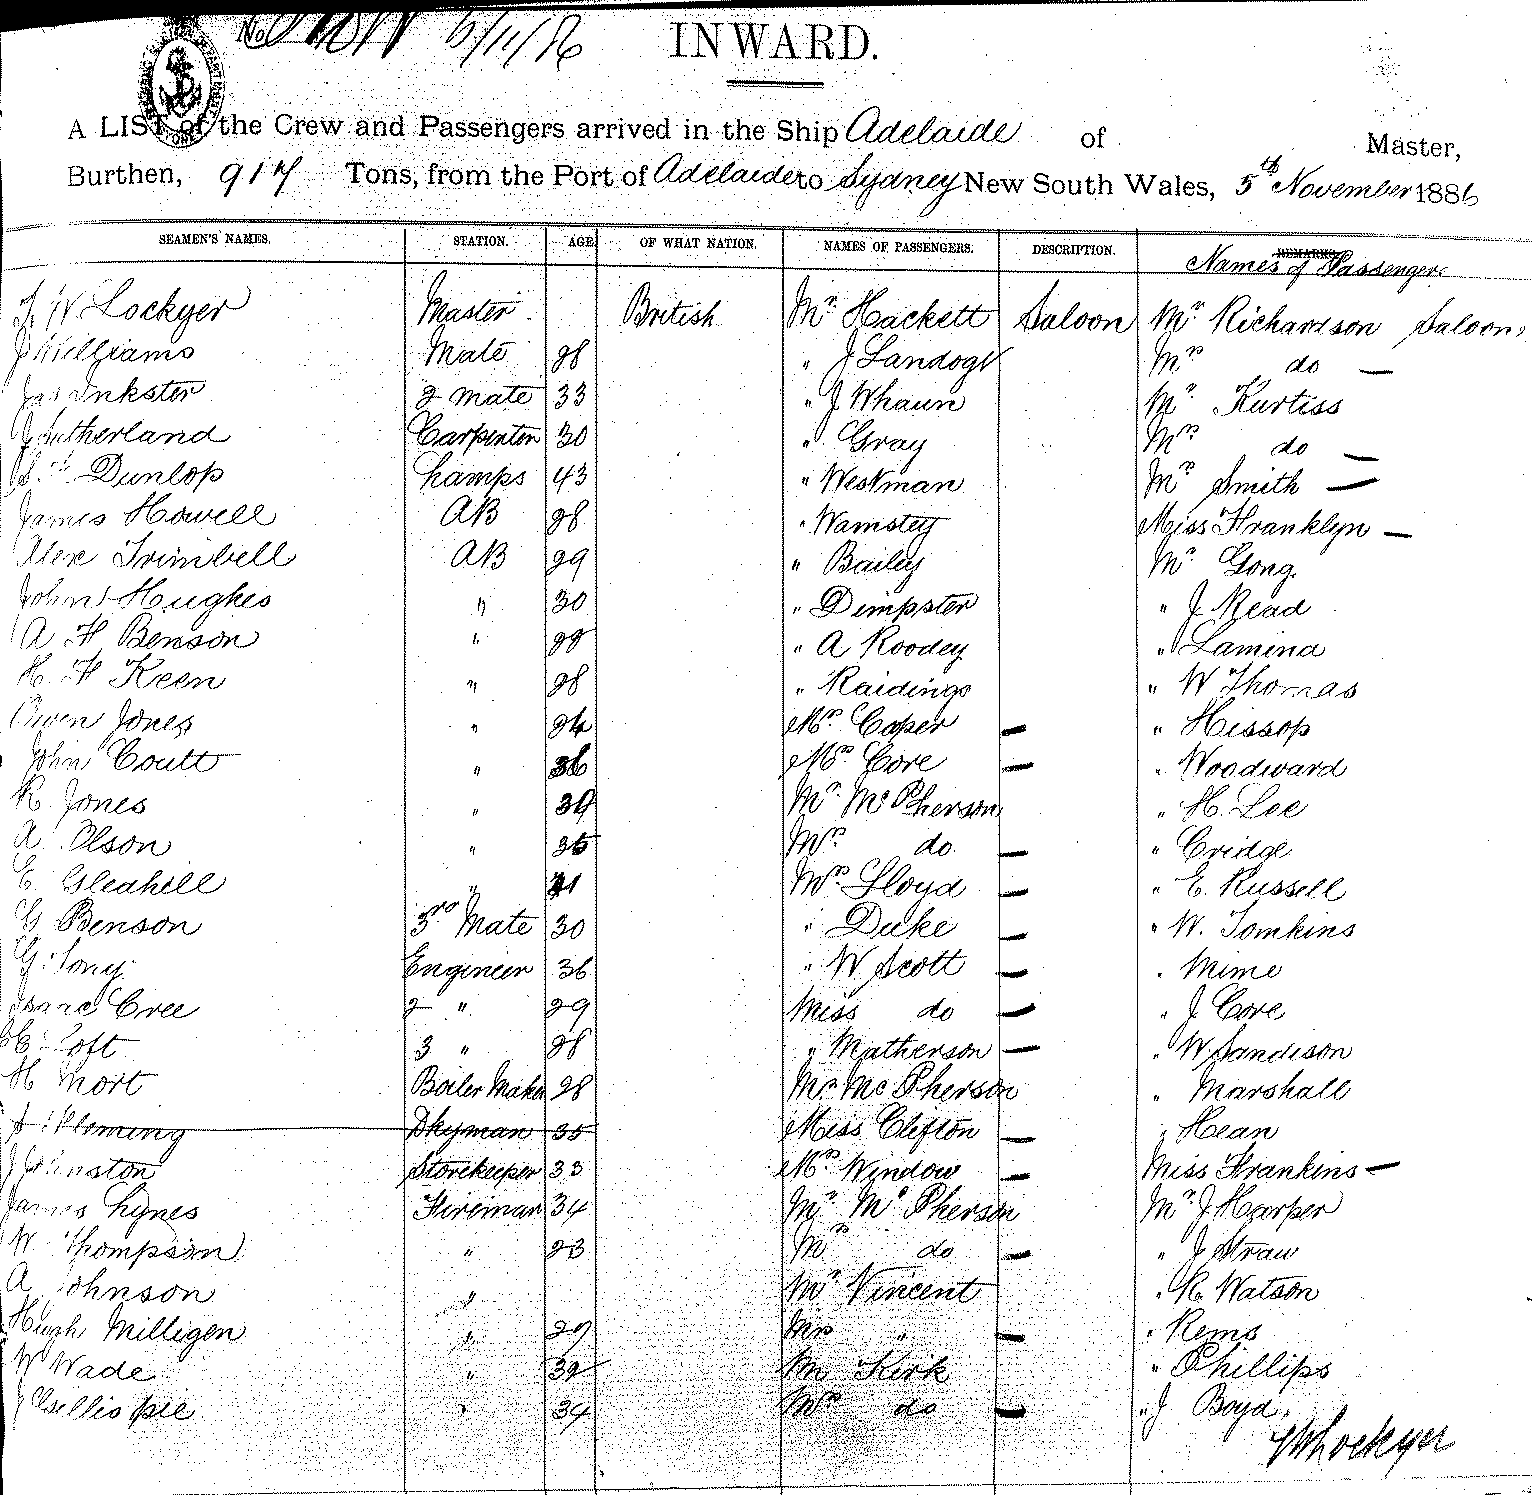 No 6/11/86
INWARD.
A LIST of the Crew and Passengers arrived in the Ship Adelaide of Master,
Burthen, 917 Tons, from the Port of Adelaide to Sydney New South Wales, 5th November 1886
SEAMEN'S NAMES. STATION. AGE OF WHAT NATION. NAMES OF PASSENGERS. DESCRIPTION. REMARKS Names of Passengers
W Lockyer Master British Mr Hackett Saloon Mr Richardson Saloon
J Williams Mate 28 " J Landogt Mrs do —
Jas Inkster 2 mate 33 " J Whaun Mr Kurtiss
J Sutherland Carpenter 30 " Gray Mrs do —
Dunlop Lamps 43 " Westman Mrs Smith —
James Howell AB 28 " Wamsley Miss Franklyn —
Alex Trimbell AB 29 " Bailey Mr Gong
John Hughes " 30 " Dempster " J Read
A H Benson " 22 " A Roodey " Lamina
H. H Keen " 28 " Raidings " W Thomas
Owen Jones " 24 Mrs Coper — " Hissop
John Coutt " 36 Mrs Core — " Woodward
R. Jones " 39 Mr McPherson " H. Lee
A Olson " 35 Mrs do — " Cridge
E. Gleahill " 41 Mrs Lloyd — " E. Russell
G Benson 3rd Mate 30 " Duke — " W. Tomkins
G. Engineer 36 " W Scott — " Mime
Isaac Cree 2 " 29 Miss do — " J Core
Toft 3 " 28 " Matherson — " W Sandison
H Mort Boiler Maker 28 Mr McPherson " Marshall
Fleming Dkyman 35 Miss Clifton — " Hean
J Johnston Storekeeper 33 Mrs Window — Miss Frankins —
James Lynes Fireman 34 Mr McPherson Mr J Harper
W Thompson " 23 Mrs do — " J Straw
A Johnson " Mr Vincent " R Watson
Hugh Milligen " 29 Mrs " — " Rems
W Wade " 32 Mr Kirk " Phillips
J Gillispie " 34 Mrs do — " J Boyd
W Lockyer